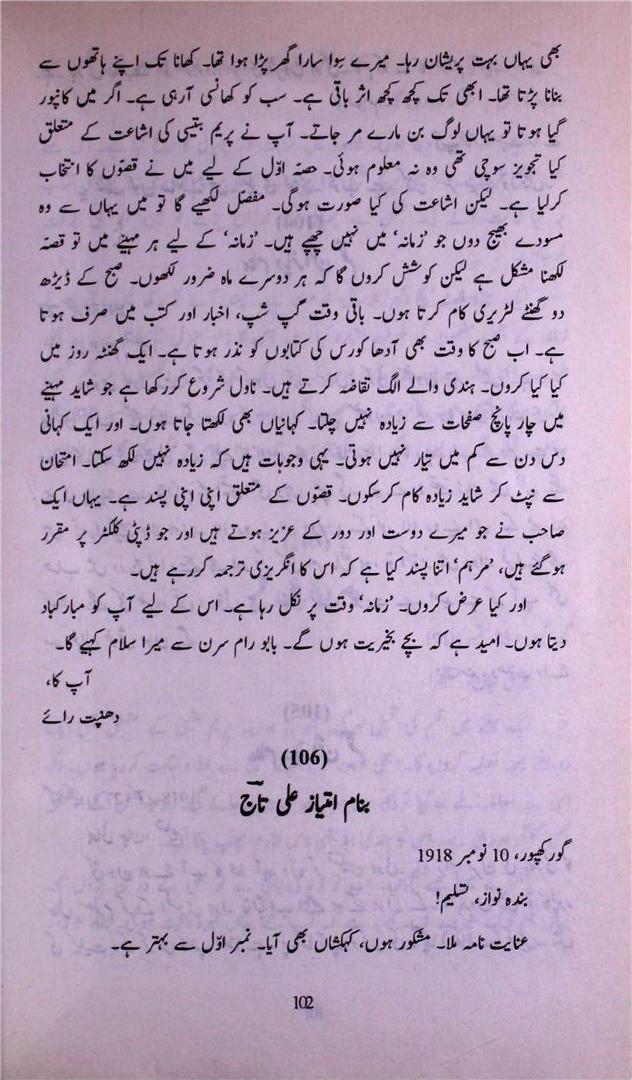 بھی یہاں بہت پریشان رہا۔ میرے سِوا سارا گھر پڑا ہوا تھا۔ کھانا تک اپنے ہاتھوں سے
بنانا پڑتا تھا۔ ابھی تک کچھ کچھ اثر باقی ہے۔ سب کو کھانسی آرہی ہے۔ اگر میں کانپور
گیا ہوتا تو یہاں لوگ بن مارے مر جاتے۔ آپ نے پریم بتیسی کی اشاعت کے متعلق
کیا تجویز سوچی تھی وہ نہ معلوم ہوئی۔ حصہ اوّل کے لیے میں نے قصّوں کا انتخاب
کرلیا ہے۔ لیکن اشاعت کی کیا صورت ہوگی۔ مفصّل لکھیے گا تو میں یہاں سے وہ
مسودے بھیج دوں جو ’زمانہ‘ میں نہیں چھپے ہیں۔ ’زمانہ‘ کے لیے ہر مہینے میں تو قصّہ
لکھنا مشکل ہے لیکن کوشش کروں گا کہ ہر دوسرے ماہ ضرور لکھوں۔ صبح کے ڈیڑھ
دو گھنٹے لٹریری کام کرتا ہوں۔ باقی وقت گپ شپ، اخبار اور کتب میں صرف ہوتا
ہے۔ اب صبح کا وقت بھی آدھا کورس کی کتابوں کو نذر ہوتا ہے۔ ایک گھنٹہ روز میں
کیا کیا کروں۔ ہندی والے الگ تقاضہ کرتے ہیں۔ ناول شروع کررکھا ہے جو شاید مہینے
میں چار پانچ صفحات سے زیادہ نہیں چلتا۔ کہانیاں بھی لکھتا جاتا ہوں۔ اور ایک کہانی
دس دن سے کم میں تیار نہیں ہوتی۔ یہی وجوہات ہیں کہ زیادہ نہیں لکھ سکتا۔ امتحان
سے نپٹ کر شاید زیادہ کام کرسکوں۔ قصّوں کے متعلق اپنی اپنی پسند ہے۔ یہاں ایک
صاحب نے جو میرے دوست اور دور کے عزیز ہوتے ہیں اور جو ڈپٹی کلکٹر پر مقرر
ہوگئے ہیں، ’مرہم‘ اتنا پسند کیا ہے کہ اس کا انگریزی ترجمہ کررہے ہیں۔
اور کیا عرض کروں۔ ’زمانہ‘ وقت پر نکل رہا ہے۔ اس کے لیے آپ کو مبارکباد
دیتا ہوں۔ امید ہے کہ بچے بخیریت ہوں گے۔ بابو رام سرن سے میرا سلام کہیے گا۔
آپ کا،
دھنپت رائے
(106)
بنام امتیاز علی تاج
گورکھپور، 10 نومبر 1918
بندہ نواز، تسلیم!
عنایت نامہ ملا۔ مشکور ہوں، کہکشاں بھی آیا۔ نمبر اوّل سے بہتر ہے۔
102